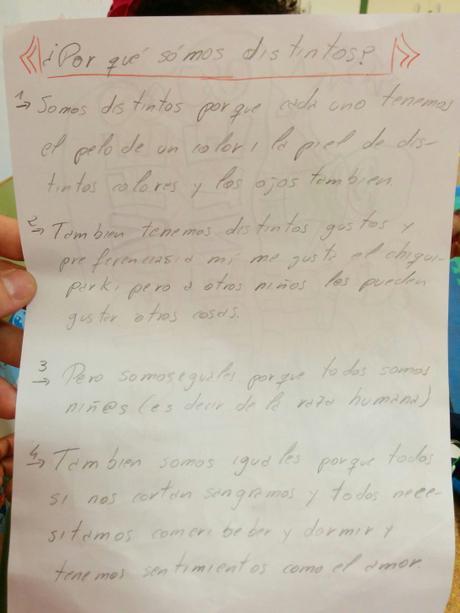 ¿Por qué sómos distintos?
1→ Somos distintos porque cada uno tenemos
el pelo de un color, la piel de dis-
tintos colores y los ojos tambien
2→ Tambien tenemos distintos gustos y
preferencias,a mí me gusta el chiqui-
park, pero a otros niños les pueden
gustar otros cosas.
3→ Pero somos eguales porque todos somos
niñ@s (es decir de la raza humana)
4→ Tambien somos iguales porque todos
si nos cortan sangramos y todos nece-
sitamos comer, beber y dormir y
tenemos sentimientos como el amor.